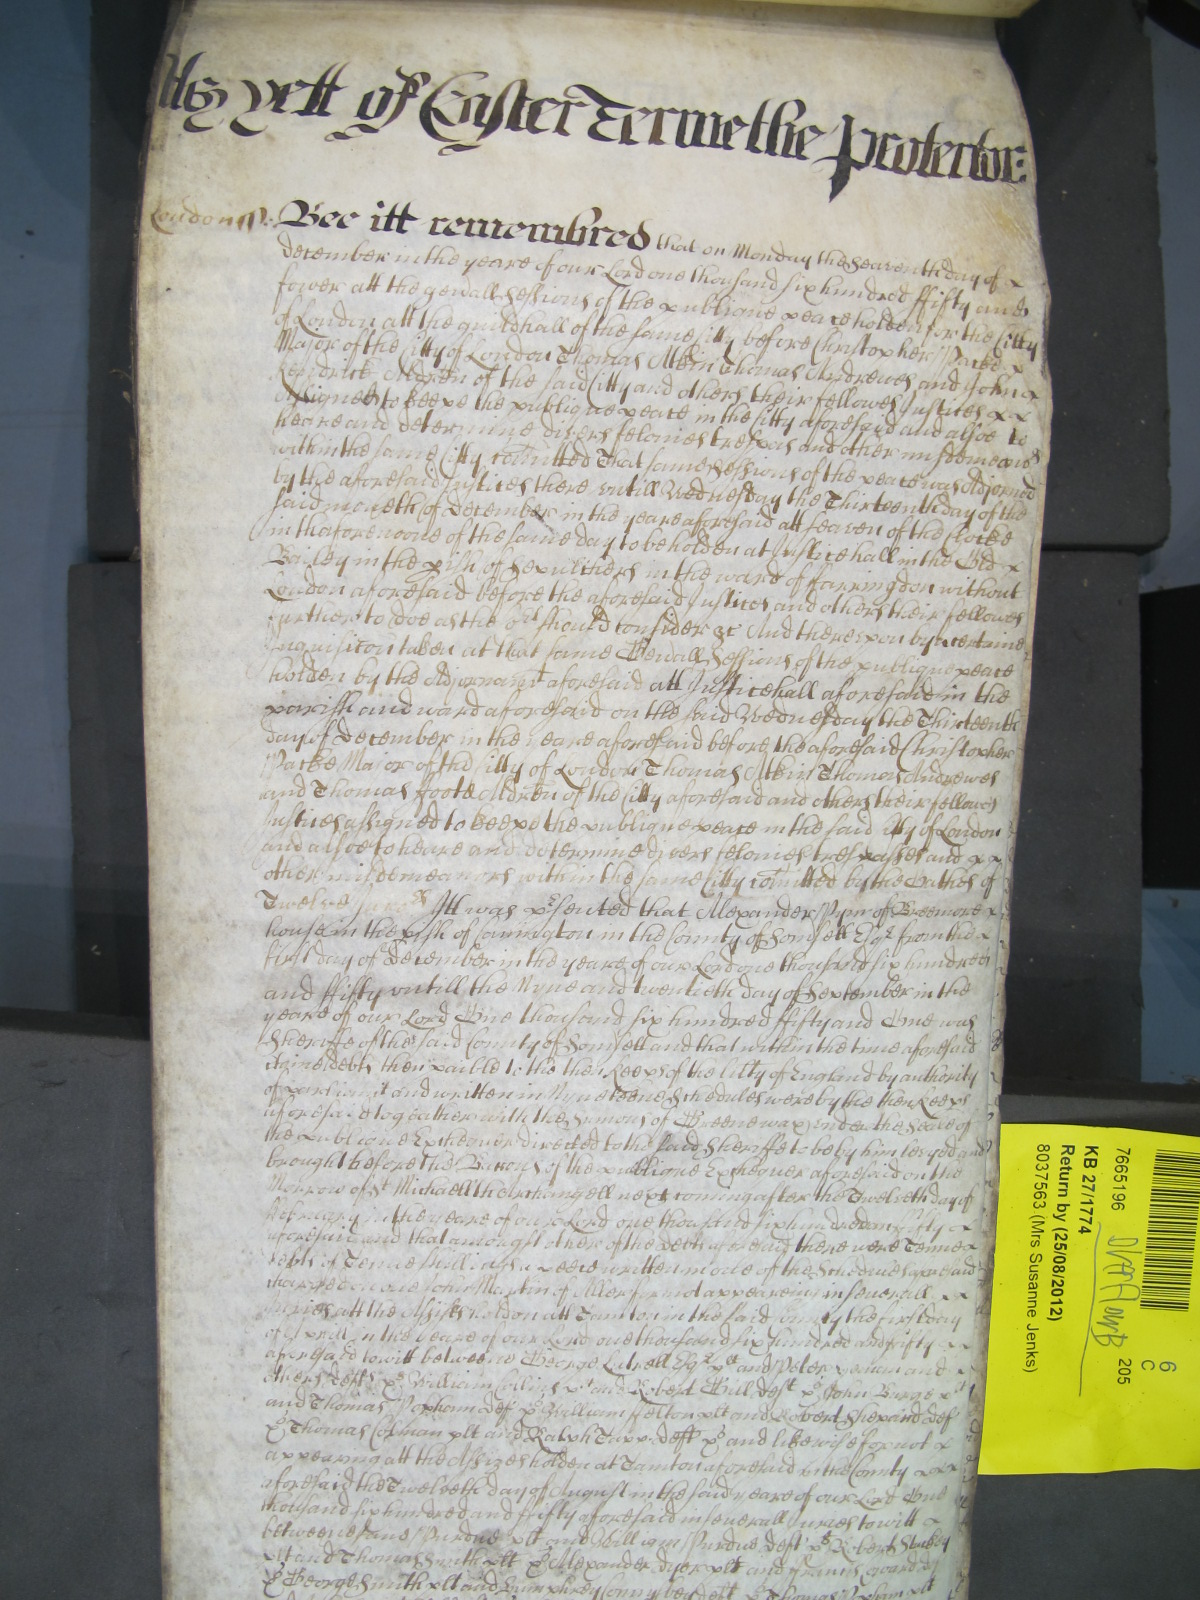 As yett of Easter Terme the Protector:
London ss: Bee itt remembred that on Monday the Seaventh day of
December in the yeare of our Lord one thousand six hundred ffifty and
fower att the genall Sessions of the publique peace holden for the Citty
of London att the guildhall of the same Citty before Christopher Packe
Maior of the Citty of London Thomas Atkin Thomas Andrewes and John
Kendrick Aldren of the said Citty and others their fellowes Justices
Assigned to keepe the publique peace in the Citty aforesaid and alsoe to
heare and determine divers felonies trespas and other misdemeanors
within the same Citty comitted That same Sessions of the peace was Adjorned
by the aforesaid Justices there untill Wednesday the Thirteenth day of the
said moneth of December in the yeare aforesaid att seaven of the Clocke
in the forenoone of the same day to be holden at Justice hall in the Old
Bailey in the pish of Sepulchers in the ward of ffarringdon without
London aforesaid before the aforesaid Justices and others their fellowes
further to doe as the Cort should consider &c And thereupon by a certaine
Inquisicon taken at that same Genall Sessions of the publique peace
holden by the Adjornamt aforesaid att Justice hall aforesaid in the
parish and ward aforesaid on the said Wednesday the Thirteenth
day of December in the yeare aforesaid before the aforesaid Christopher
Packe Maior of the Citty of London Thomas Atkin Thomas Andrewes
and Thomas Foote Aldren of the Citty aforesaid and others their fellowes
Justices assigned to keepe the publique peace in the said Citty of London
and alsoe to heare and determine divers felonies trespasses and
other misdemeanors within the same Citty comitted by the Oathes of
Twelve Jurors Itt was psented that Alexander Pym of
house in the pish of Cannington in the County of Somsett Esqr from the
first day of December in the yeare of our Lord one thousand six hundred
and ffifty untill the Nyne and twentieth day of September in the
yeare of our Lord One thousand six hundred ffifty and One was
Sheriffe of the said County of Somsett and that within the time aforesaid
debts then paible to the then Keeps of the libty of England by authority
of parliamt and written in Nyneteene Schedules were by the then Keeps
aforesaid togeather with the Sumons of Greenewax under the Seale of
the publique Exchequer directed to the said Sheriffe to be by him levyed and
brought before the Barons of the publique Exchequer aforesaid on the
Morrow of St Michaell the archangell next coming after the Twelveth day of
February in the yeare of our Lord one thousand six hundred and ffifty
aforesaid and that amongst other of the debts aforesaid there were Tenne
debts of Tenne shillings a peece written in one of the Schedules aforesaid
charged on one John Martin of Aller for not appearing in severall
Juries att the Assises holden att Tanton in the said County the first day
of Aprill in the yeare of our Lord one thousand six hundred and fifty
aforesaid to witt betweene George Lutrell Esqr plt and Peter and
others defts William plt and Robert Gill deft John Burge plt
and Thomas Popham def William Felton plt and Robert Shepard def
Thomas Colman plt and Ralph Tapp deft and likewise for not
appearing att the Assizes holden at Tanton aforesaid in the County
aforesaid the Twelveth day of August in the said yeare of our Lord One
thousand six hundred and ffifty aforesaid in severall Juries to witt
betweene Jane Purdue plt and William Purdue deft Robert Stuckey
plt and Thomas Smith Alexander dyer plt and ffrancis
George Smith plt and Humphrey deft Thomas plt
7665196
KB 27/1774
Return by (25/08/2012)
8037563 (Mrs Susanne Jenks)
205
6
C